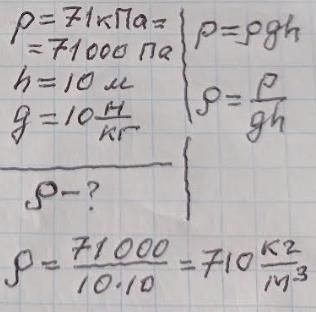 p = 71 кПа =
= 71000 Па
h = 10 м
g = 10 Н/кг
ρ - ?
p = ρgh
ρ = p/gh
ρ = 71000/10·10 = 710 кг/м³